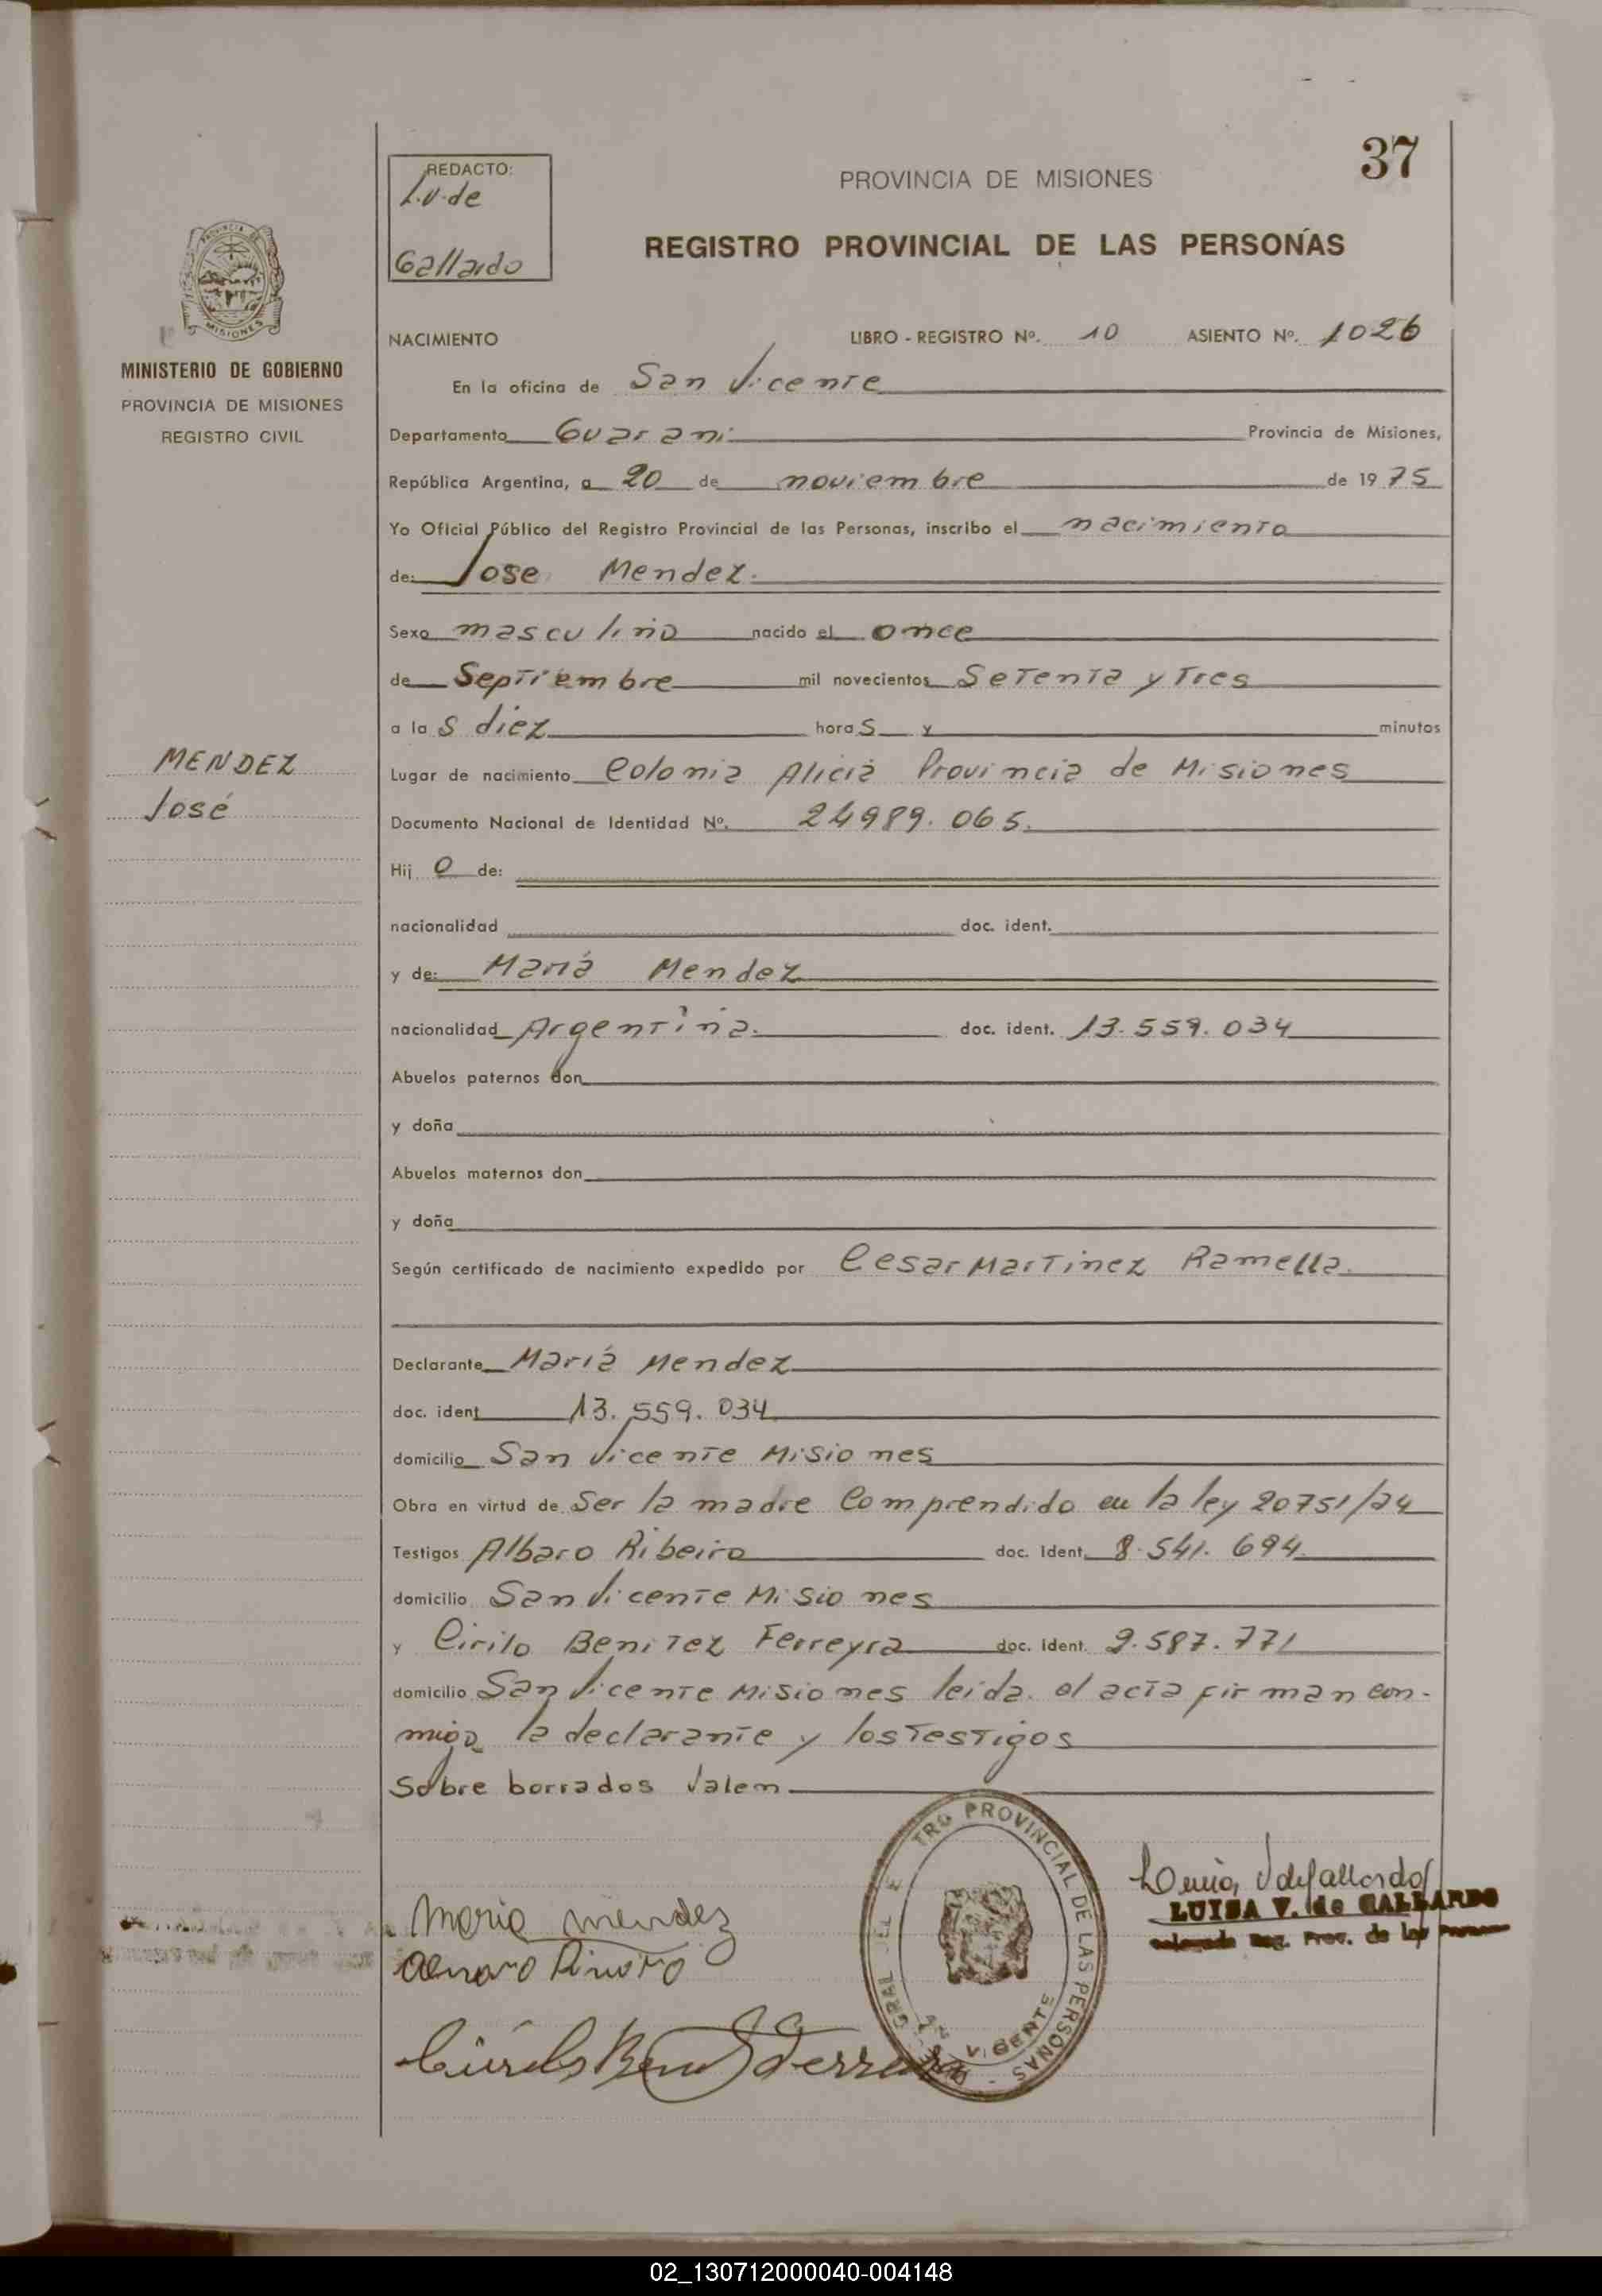 37
REDACTO:
L.V. de
Gallardo
PROVINCIA DE MISIONES
REGISTRO PROVINCIAL DE LAS PERSONAS
PROVINCIA DE
MISIONES
MINISTERIO DE GOBIERNO
PROVINCIA DE MISIONES
REGISTRO CIVIL
NACIMIENTO LIBRO - REGISTRO Nº. 10 ASIENTO Nº. 1026
En la oficina de San Vicente
Departamento Guarani Provincia de Misiones,
República Argentina, a 20 de noviembre de 1975
Yo Oficial Público del Registro Provincial de las Personas, inscribo el nacimiento
de: Jose Mendez.
Sexo masculino nacido el once
de Septiembre mil novecientos Setenta y Tres
a las diez horas y minutos
MENDEZ
José
Lugar de nacimiento Colonia Alicia Provincia de Misiones
Documento Nacional de Identidad Nº. 24989.065.
Hijo de:
nacionalidad doc. ident.
y de: Maria Mendez
nacionalidad Argentina. doc. ident. 13.559.034
Abuelos paternos don
y doña
Abuelos maternos don
y doña
Según certificado de nacimiento expedido por Cesar Martinez Ramella.
Declarante Maria Mendez
doc. ident 13.559.034
domicilio San Vicente Misiones
Obra en virtud de Ser la madre Comprendido en la ley 20751/74
Testigos Albaro Ribeiro doc. Ident. 8.541.694
domicilio San Vicente Misiones
y Cirilo Benitez Ferreyra doc. Ident. 9.587.771
domicilio San Vicente Misiones leida el acta firman con-
migo la declarante y los Testigos
Sobre borrados Valen
Maria Mendez
LUISA V. de GALLARDO
Reg. Prov. de las
TRO PROVINCIAL DE LAS PERSONAS
GRAL DEL
VICENTE
02_130712000040-004148